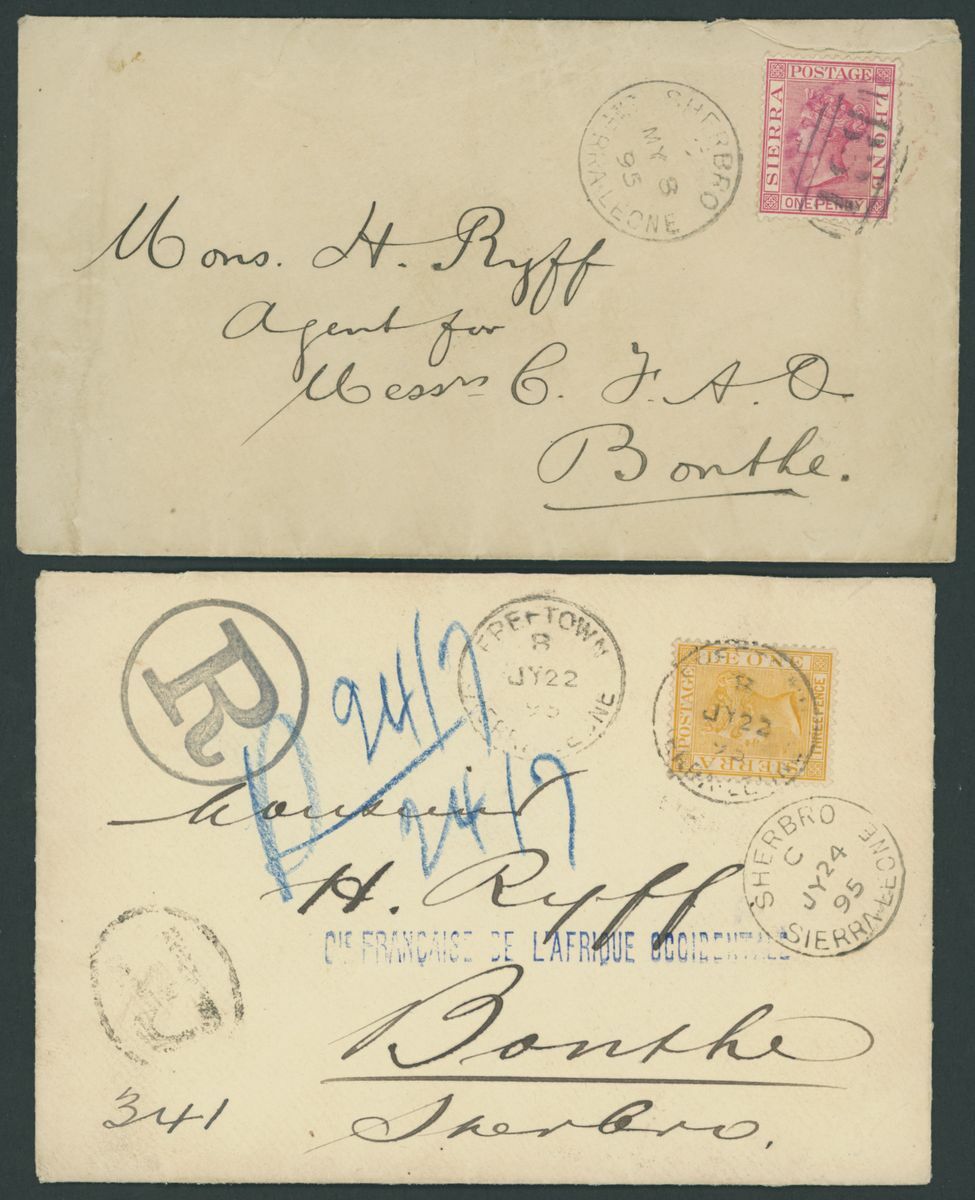 SIERRA POSTAGE LEONE
ONE PENNY
SHERBRO
MY 8
95
SIERRA LEONE
Mons. H. Ryff
Agent for
Messrs C. F. A. O.
Bonthe.
R
24/7
24/7
FREETOWN
B
JY 22
95
SIERRA POSTAGE LEONE
THREE PENCE
B
JY 22
95
SHERBRO
C
JY 24
95
SIERRA LEONE
Monsieur
H. Ryff
CIE FRANÇAISE DE L'AFRIQUE OCCIDENTALE
R
Bonthe
341
Sherbro.